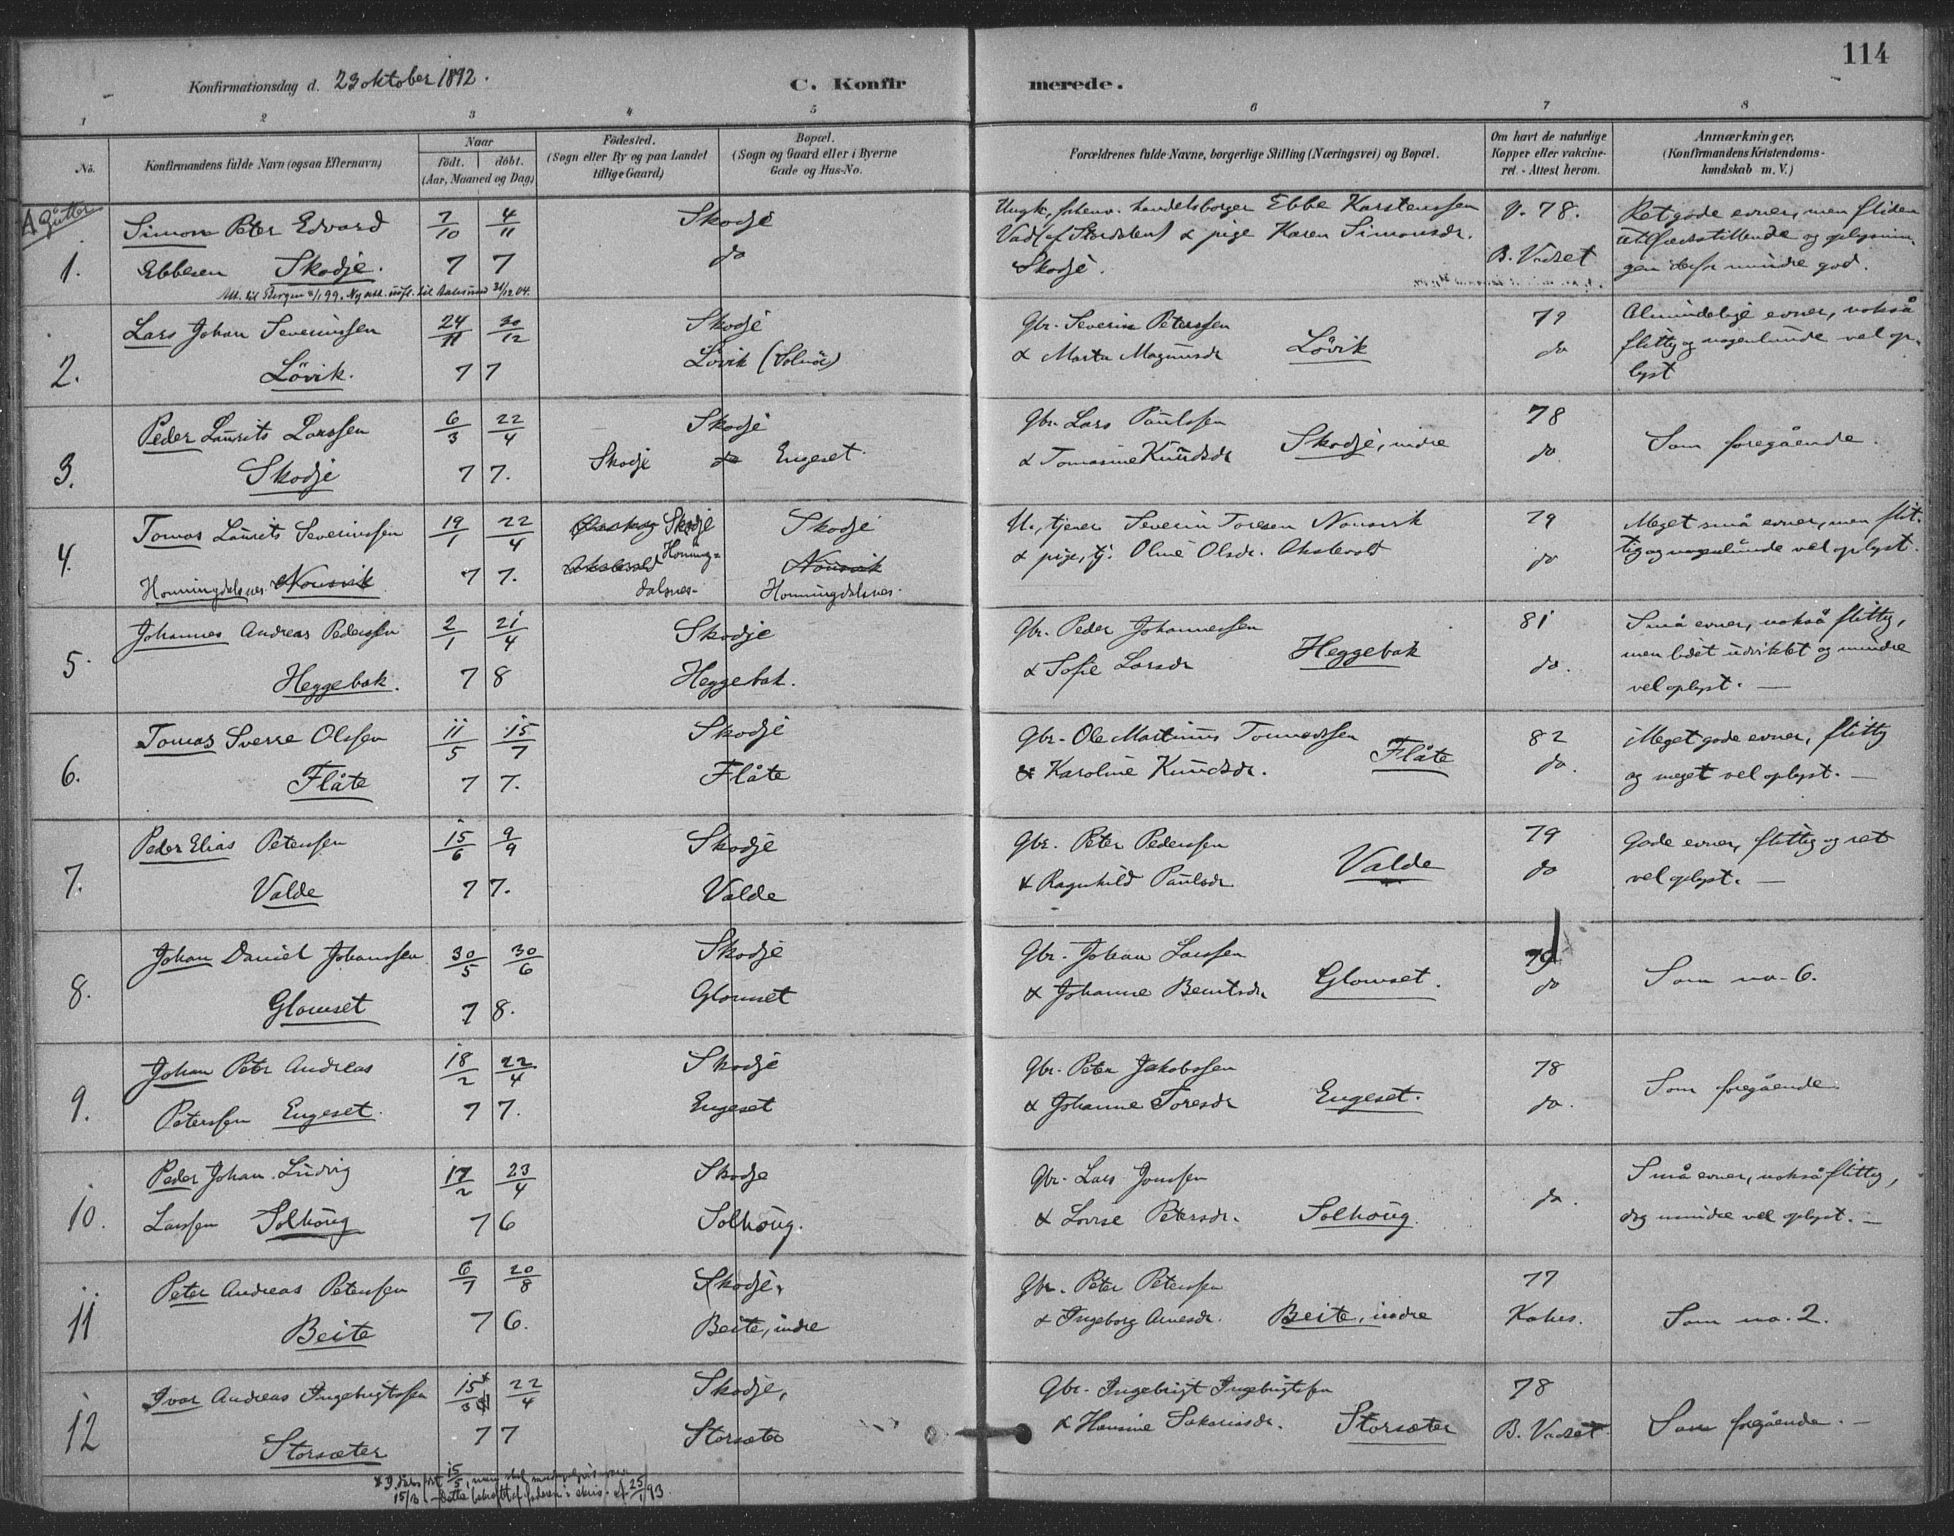 114
Konfirmationsdag d. 23 oktober 1892.
C. Konfirmerede.
1 2 3 4 5 6 7 8
No.
Konfirmandens fulde Navn (ogsaa Efternavn)
Naar
födt. döbt.
(Aar, Maaned og Dag)
Födested.
(Sogn eller By og paa Landet
tillige Gaard)
Bopæl.
(Sogn og Gaard eller i Byerne
Gade og Hus-No.
Forældrenes fulde Navne, borgerlige Stilling (Næringsvei) og Bopæl.
Om havt de naturlige
Kopper eller vakcine-
ret. - Attest herom.
Anmærkninger.
(Konfirmandens Kristendoms-
kundskab m. V.)
A Gutter
1. Simon Peter Edvard
Ebbesen Skodje.
7/10 4/11
7 7
Skodje
do
Ungk. handelsborger Ebbe Karstenssen
& pige Karen Simonsdr.
Skodje.
V. 78.
B. Vadset
Ret gode evner, men fliden
utilfredsstillende og oplysnin-
gen derfor mindre god.
2. Lars Johan Severinssen
Lövik.
24/11 30/12
7 7
Skodje
Lövik (Solnör)
Gbr. Severin Peterssen
& Marta Magnusdr Lövik
79
do
Almindelige evner, också
flittig og nogenlunde vel op-
lyst
3. Peder Laurits Larssen
Skodje
6/3 22/4
7 7.
Skodje
Skodje do Engeset
Gbr. Lars Paulssen
& Tomasine Knudsdr Skodje, indre
78
do
Som foregående.
4. Tomas Laurits Severinssen
Honningdalsnes. Nonsvik
19/1 22/4
7 7.
Skodje
Honning-
dalsnes-
Skodje
Nonsvik
Honningdalsnes.
U., tjener Severin Toresen Nonsvik
& pige, tj. Oline Olsdr. Akslevold
79
do
Meget små evner, men flit-
tig og nogenlunde vel oplyst.
5. Johannes Andreas Pederssen
Heggebak.
2/1 21/4
7 8
Skodje
Heggebak.
Gbr. Peder Johannessen
& Sofie Larsdr Heggebak
81
do.
Små evner, også flittig,
men lidet udviklet og mindre
vel oplyst. —
6. Tomas Sverre Olssen
Flåte
11/5 15/7
7 7.
Skodje
Flåte
Gbr. Ole Martinus Tomassen
& Karoline Knudsdr. Flåte
82
do.
Meget gode evner, flittig
og meget vel oplyst. —
7. Peder Elias Peterssen
Valde
15/6 9/9
7 7.
Skodje
Valde
Gbr. Peter Pederssen
& Ragnhild Paulsdr Valde
79
do
Gode evner, flittig og ret
vel oplyst. —
8. Johan Daniel Johanssen
Glomset
30/5 30/6
7 8.
Skodje
Glomset
Gbr. Johan Larssen
& Johanne Berntsdr Glomset.
79
do
Som no. 6.
9. Johan Peter Andreas
Peterssen Engeset.
18/2 22/4
7 7.
Skodje
Engeset
Gbr. Peter Jakobssen
& Johanne Toresdr Engeset.
78
do.
Som foregående.
10. Peder Johan Ludvig
Larssen Solhoug
17/2 23/4
7 6
Skodje
Solhoug.
Gbr. Lars Jonssen
& Lovise Petersdr. Solhoug.
do.
Små evner, også flittig,
dog mindre vel oplyst. —
11 Peter Andreas Peterssen
Beite
6/7 20/8
7 6.
Skodje,
Beite, indre
Gbr. Peter Peterssen
& Ingeborg Arnesdr. Beite, indre
77
Kobes.
Som no. 2.
12 Ivar Andreas Ingebrigtssen
Storsæter
15/3 22/4
7 7
Skodje,
Storsæter
Gbr. Ingebrigt Ingebrigtssen
& Hansine Sakariasdr. Storsæter
78
B. Vadset
Som foregående. —